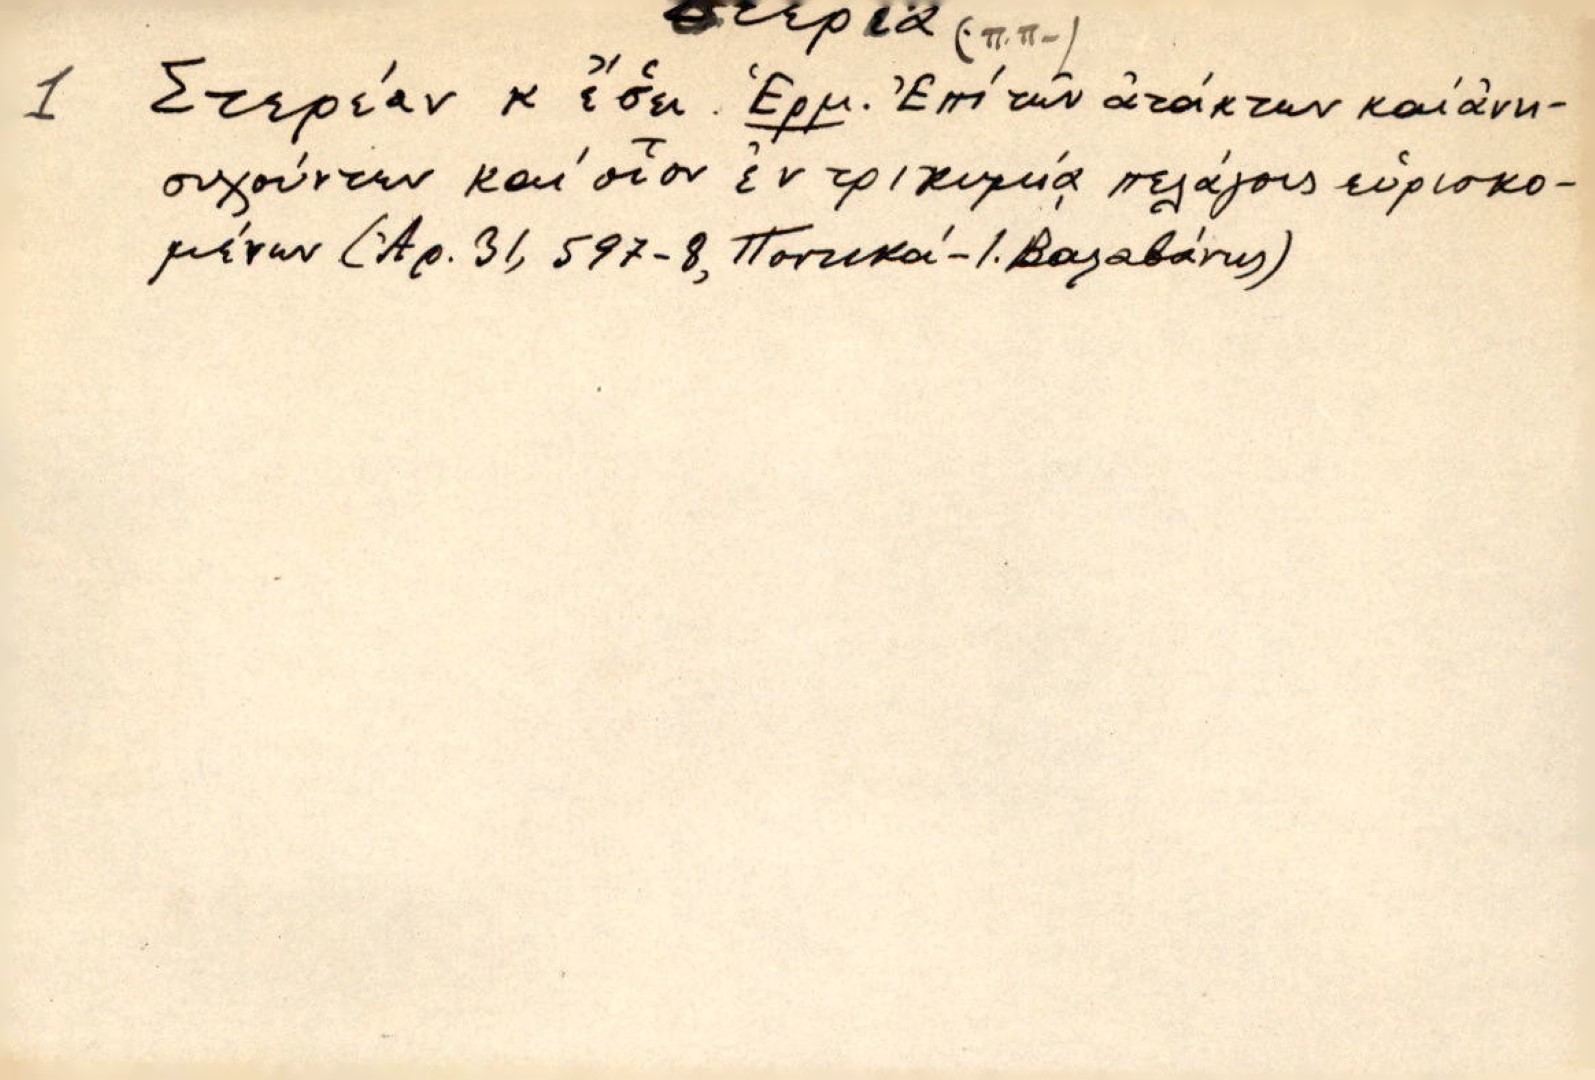 στεριά (π.π-)
1 Στερέαν κ̓ ἔ̓σ̌ει. Ἑρμ. Ἐπί τῶν ἀτάκτων καί ἀνη-
συχούντων καί οἷον ἐν τρικυμίᾳ πελάγους εὑρισκο-
μένων (Ἀρ. 31, 597-8, Ποντικά - Ι. Βαλαβάνης)